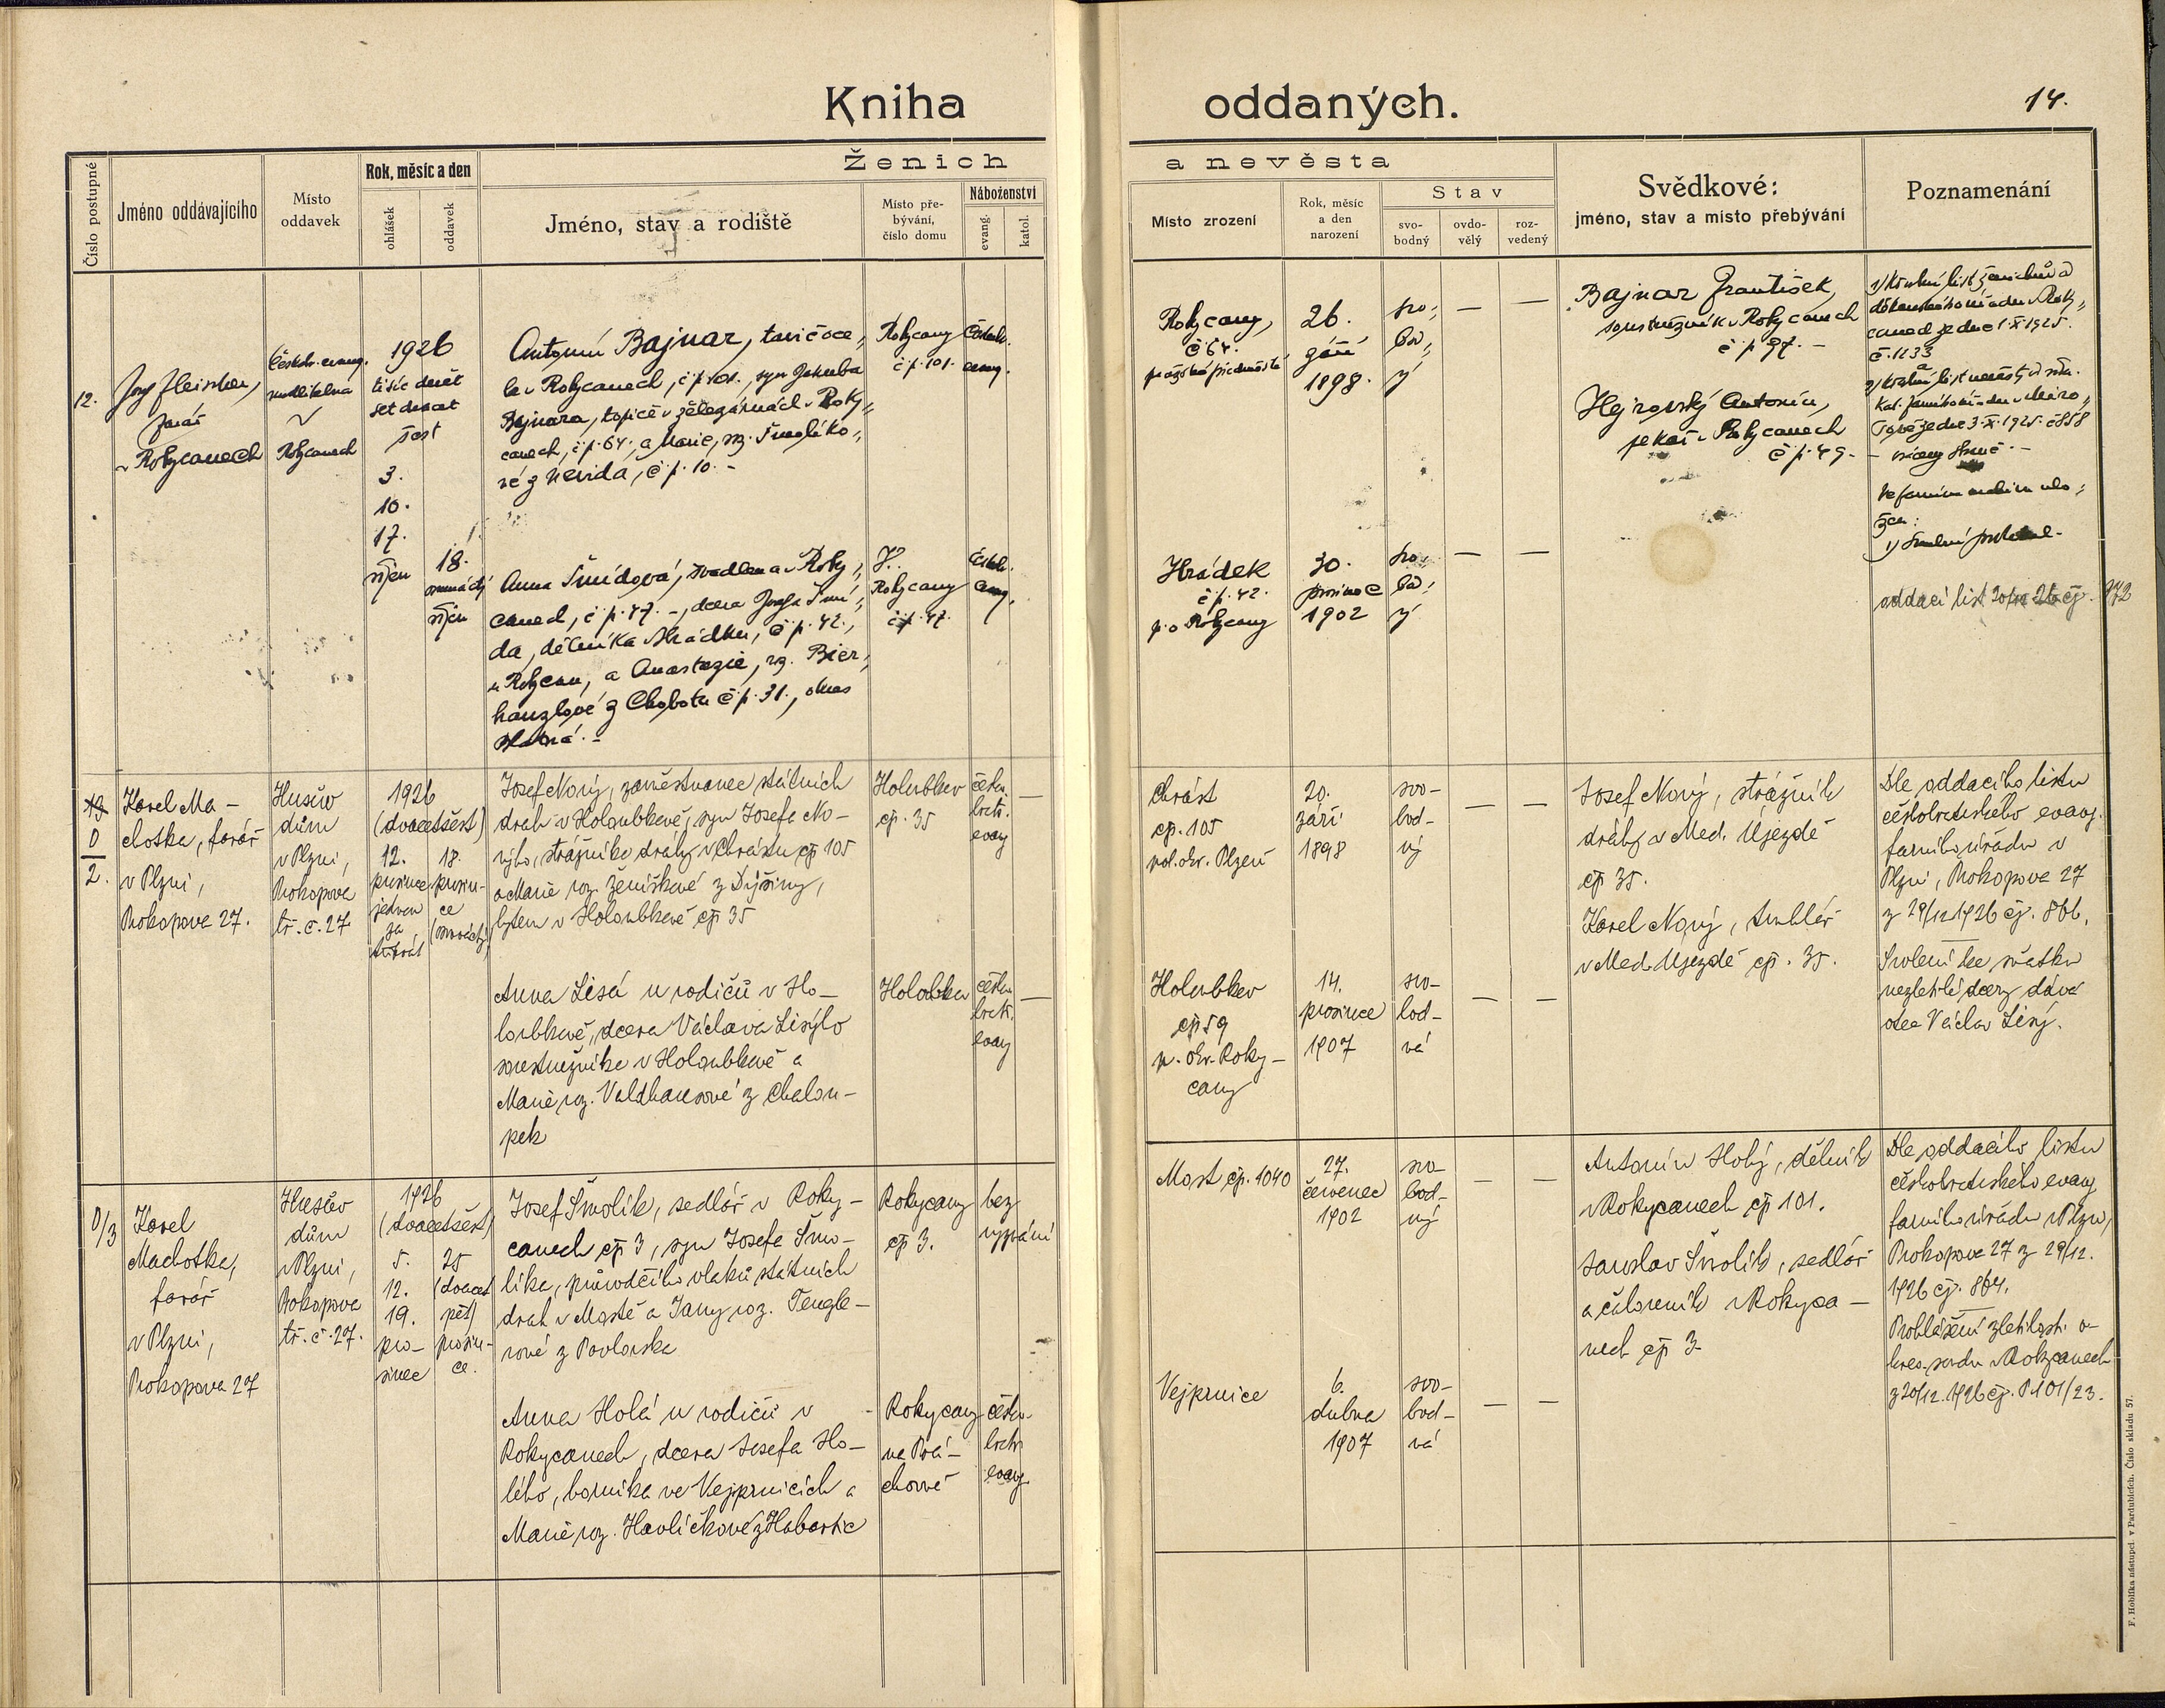 Kniha oddaných.
14.
Číslo postupné
Jméno oddávajícího
Místo oddavek
Rok, měsíc a den
ohlášek
oddavek
Ženich a nevěsta
Jméno, stav a rodiště
Místo pře-
bývání,
číslo domu
Náboženství
evang.
katol.
Místo zrození
Rok, měsíc
a den
narození
Stav
svo-
bodný
ovdo-
vělý
roz-
vedený
Svědkové:
jméno, stav a místo přebývání
Poznamenání
12.
farář
v Rokycanech
Českobr. evang.
modlitebna
v
Rokycanech
1926
tisíc devět
set dvacet
šest
3.
10.
17.
říjen
18.
osmnáctý
říjen
Antonín Bajnar, tavič oce„
le v Rokycanech, čp. 101., syn Jakuba
Bajnara, topiče v železárnách v Roky„
canech, čp. 64., a Marie, roz. Smolíko„
vé z Nevida, čp. 10. -
Rokycany
čp. 101.
Rokycany,
č 64.
26.
září
1898.
svo„
bod„
ý
—
—
Bajnar František,
soustružník v Rokycanech
čp 97. -
Hejrovský Antonín,
pekař v Rokycanech
čp. 49.
1) Křestní list ženichův od
děkanského úřadu v Roky„
canech ze dne 1.X.1925.
č. 1133
Anna Šmídová, švadlena v Roky„
canech, čp. 47. -, dcera Josefa Šmí„
da, dělníka v Hrádku, čp. 42.,
u Rokycan, a Anastazie, roz. Bier„
hanzlové z Chobotu čp. 31., okres
Blatná. -
V.
Rokycany
čp. 47.
Hrádek
čp. 42.
p. o. Rokycany
30.
prosinec
1902
svo„
bod„
ý
—
—
oddací list 30/12 26 čj. 972
13
0
2.
Karel Ma-
chotka, farář
v Plzni,
Prokopova 27.
Husův
dům
v Plzni,
Prokopova
tř. č. 27
1926
(dvacetšest)
12.
prosince
jednou
za
třikrát
18.
prosin-
ce
(osmnáctý)
Josef Nový, zaměstnanec státních
drah v Holoubkově, syn Josefa No-
vého, strážníka dráhy v Chrástu čp 105
a Marie roz. Ženíškové z Dýšiny,
bytem v Holoubkově čp 35
Holoubkov
čp. 35
česko.
bratr.
evang
—
Chrást
čp. 105
pol. okr. Plzeň
20.
září
1898
svo-
bod-
ný
—
—
Josef Nový, strážník
dráhy v Med. Újezdě
čp 35.
Karel Nový, truhlář
v Med. Újezdě čp. 35.
Dle oddacího listu
českobratrského evang.
farního úřadu v
Plzni, Prokopova 27
z 29/12 1926 čj. 866.
Svolení ke sňatku
nezletilé dcery dává
otec Václav Lisý.
Anna Lisá u rodičů v Ho-
loubkově, dcera Václava Lisýho
soustružníka v Holoubkově a
Marie roz. Valdhausové z Chalou-
pek
Holoubkov
česko
bratr.
evang
—
Holoubkov
čp 59
p. okr. Roky-
cany
14.
prosince
1907
svo-
bod-
ná
—
—
0/3
Karel
Machotka,
farář
v Plzni,
Prokopova 27
Husův
dům
v Plzni,
Prokopova
tř. č. 27.
1926
(dvacetšest)
5.
12.
19.
pro-
sinec
25
(dvacet
pět)
prosin-
ce.
Josef Smolík, sedlář v Roky-
canech čp 3, syn Josefa Smo-
líka, průvodčího vlaků státních
drah v Mostě a Jany roz. Tengle-
rové z Pavlovska
Rokycany
čp 3.
bez
vyznání
Most čp. 1040
27.
červenec
1902
svo-
bod-
ný
—
—
Antonín Holý, dělník
v Rokycanech čp 101.
Jaroslav Smolík, sedlář
a čalouník v Rokyca-
nech čp 3.
Dle oddacího listu
českobratrského evang
farního úřadu v Plzni,
Prokopova 27 z 29/12.
1926 čj. 864.
Prohlášení zletilosti o-
kres. soudu v Rokycanech
z 20/12. 1926 čj. P 101/23.
Anna Holá u rodičů v
Rokycanech, dcera Josefa Ho-
lého, horníka ve Vejprnicích a
Marie roz. Havlíčkové z Habartic
Rokycany
na Prá-
chovně
česko-
bratr
evang.
Vejprnice
6.
dubna
1907
svo-
bod-
ná
—
—
F. Hoblíka nástupci v Pardubicích. Číslo skladu 57.